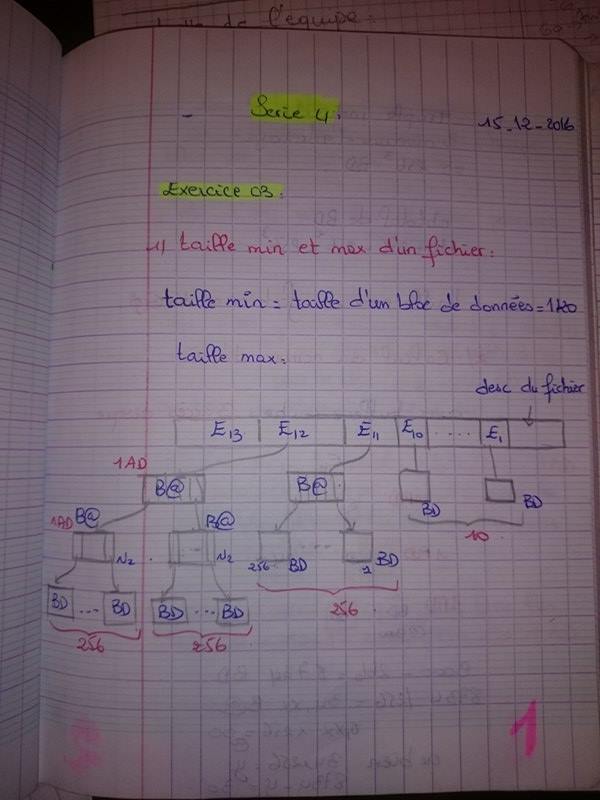 de l'équipe:
- Serie 4:
15-12-2016
Exercice 03:
1) taille min et max d'un fichier:
taille min = taille d'un bloc de données = 1KO
taille max:
desc du fichier
E13 E12 E11 E10 .... E1
1AD
B@ B@
BD BD
10
1AD B@ B@
N2 . N2 256 BD ... 1 BD
256
BD ... BD BD ... BD
256 256
1